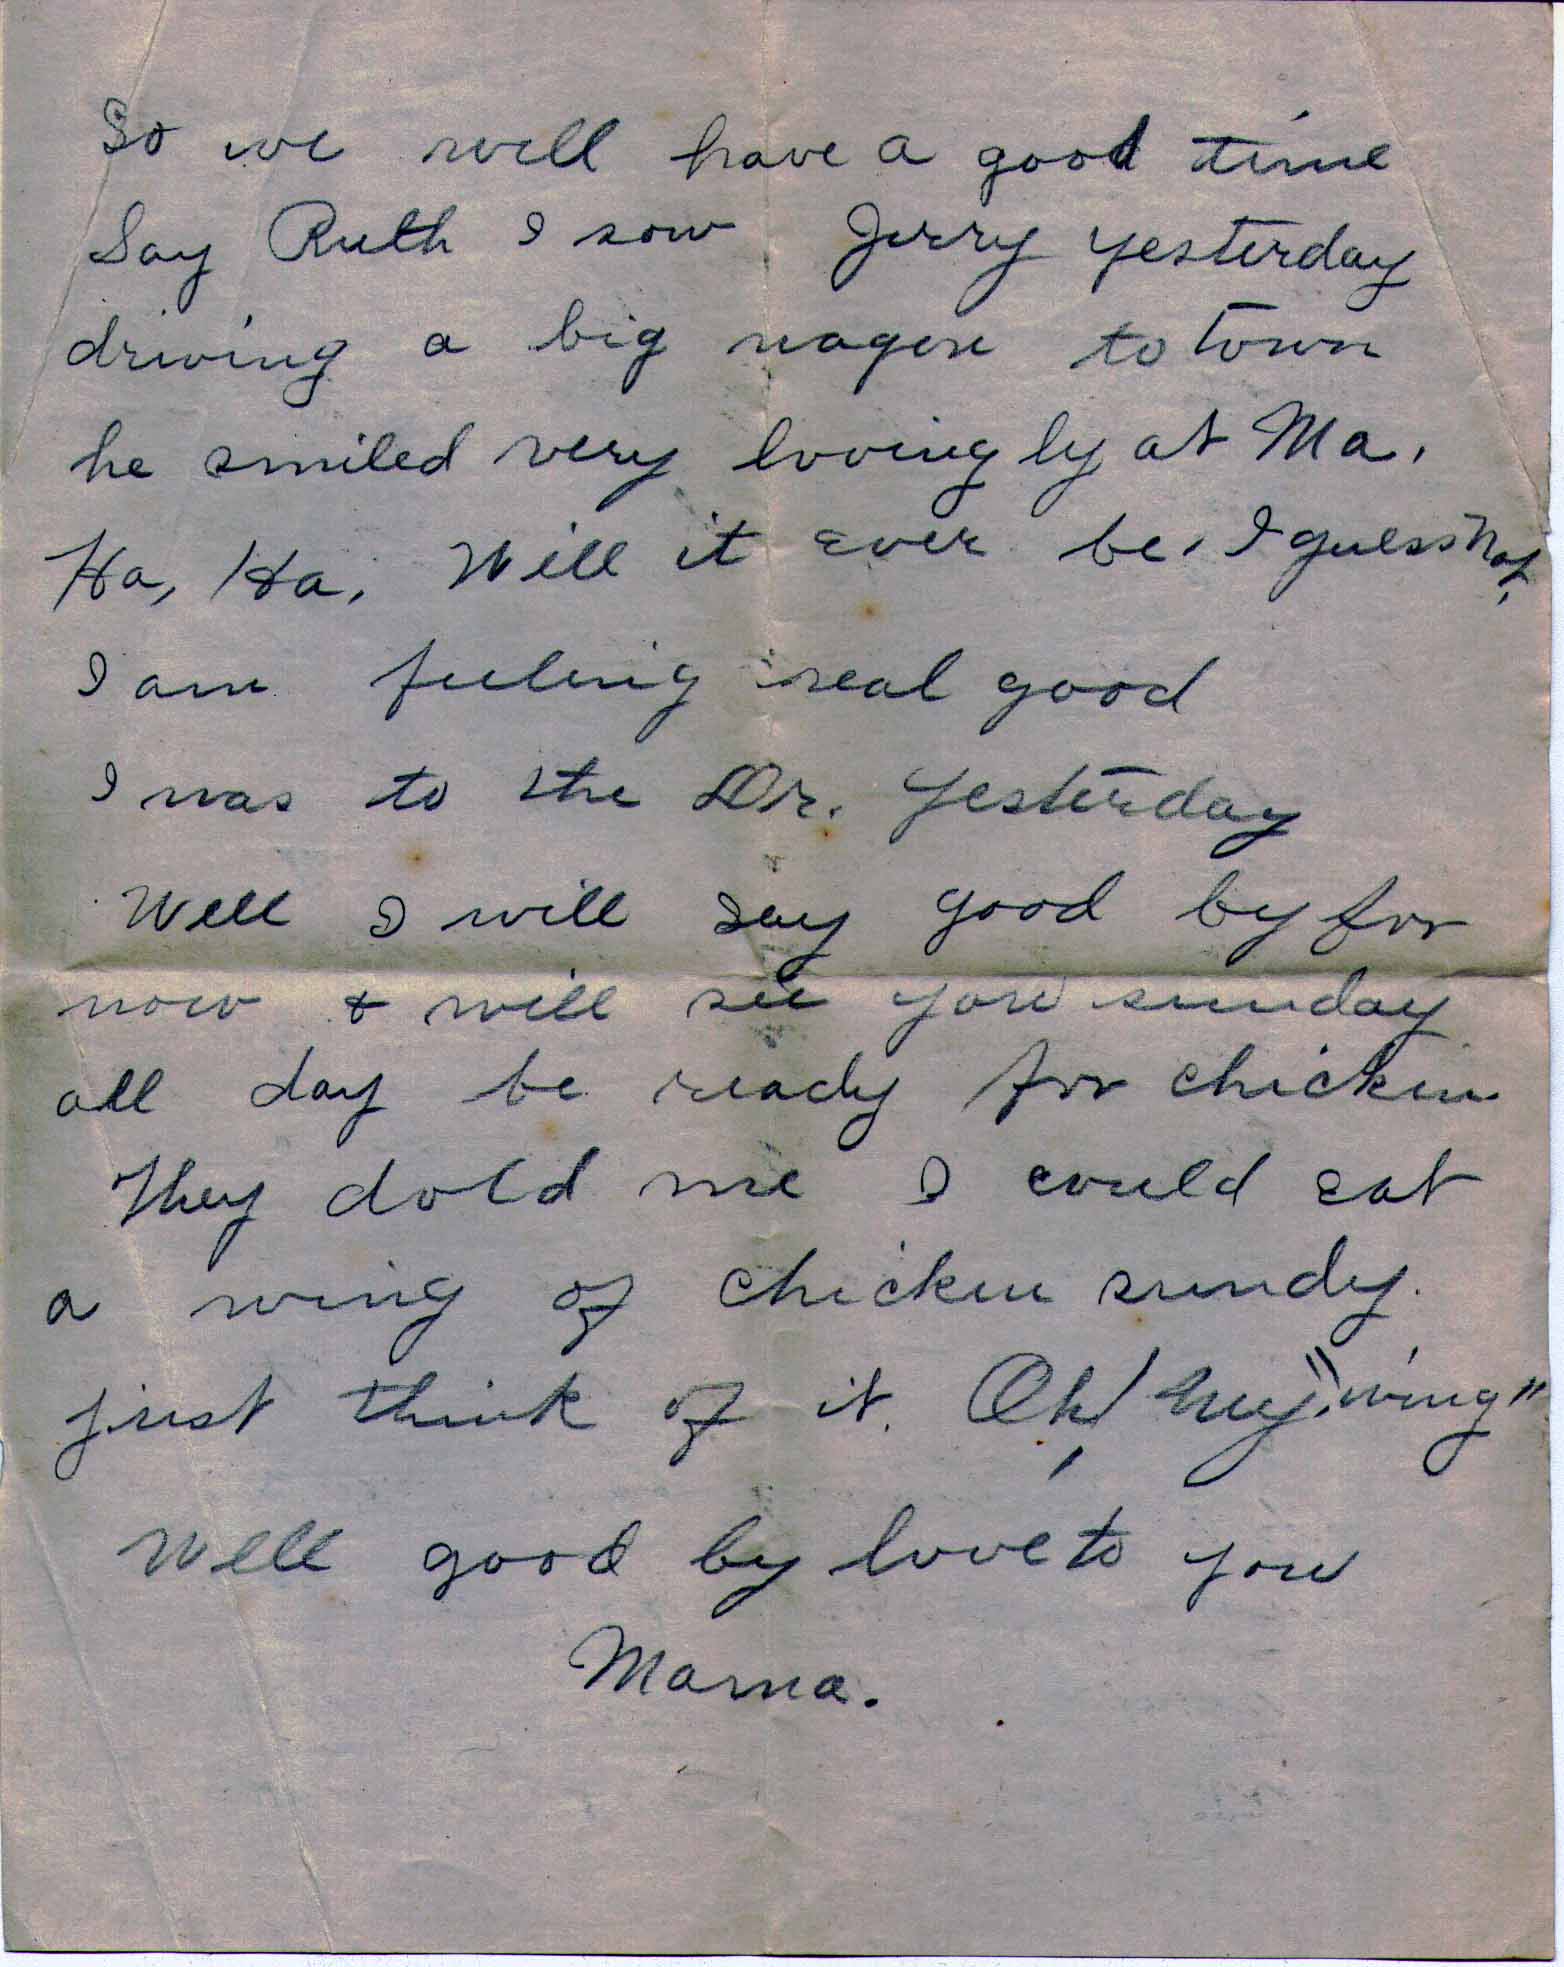 So we will have a good time
Say Ruth I saw Jerry yesterday
driving a big wagon to town
he smiled very lovingly at Ma.
Ha, Ha, Will it ever be, I guess Not,
I am feeling real good
I was to the Dr. yesterday
Well I will say good by for
now & will see you sunday
all day be ready for chicken
They dold me I could eat
a wing of chicken sundy.
just think of it. Oh! My, "wing"
Well good by love to you
Mama.